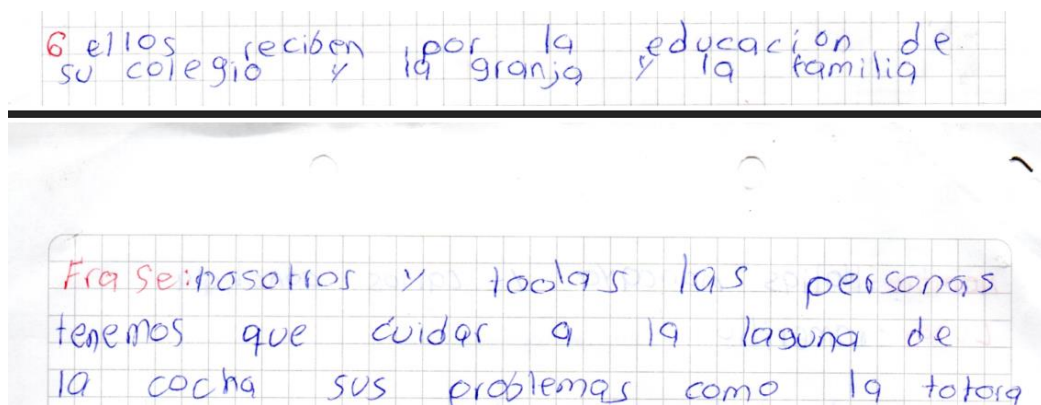 6 ellos reciben por la educacion de
su colegio y la granja y la familia
Frase: nosotros y todas las personas
tenemos que cuidar a la laguna de
la cocha sus problemas como la totora